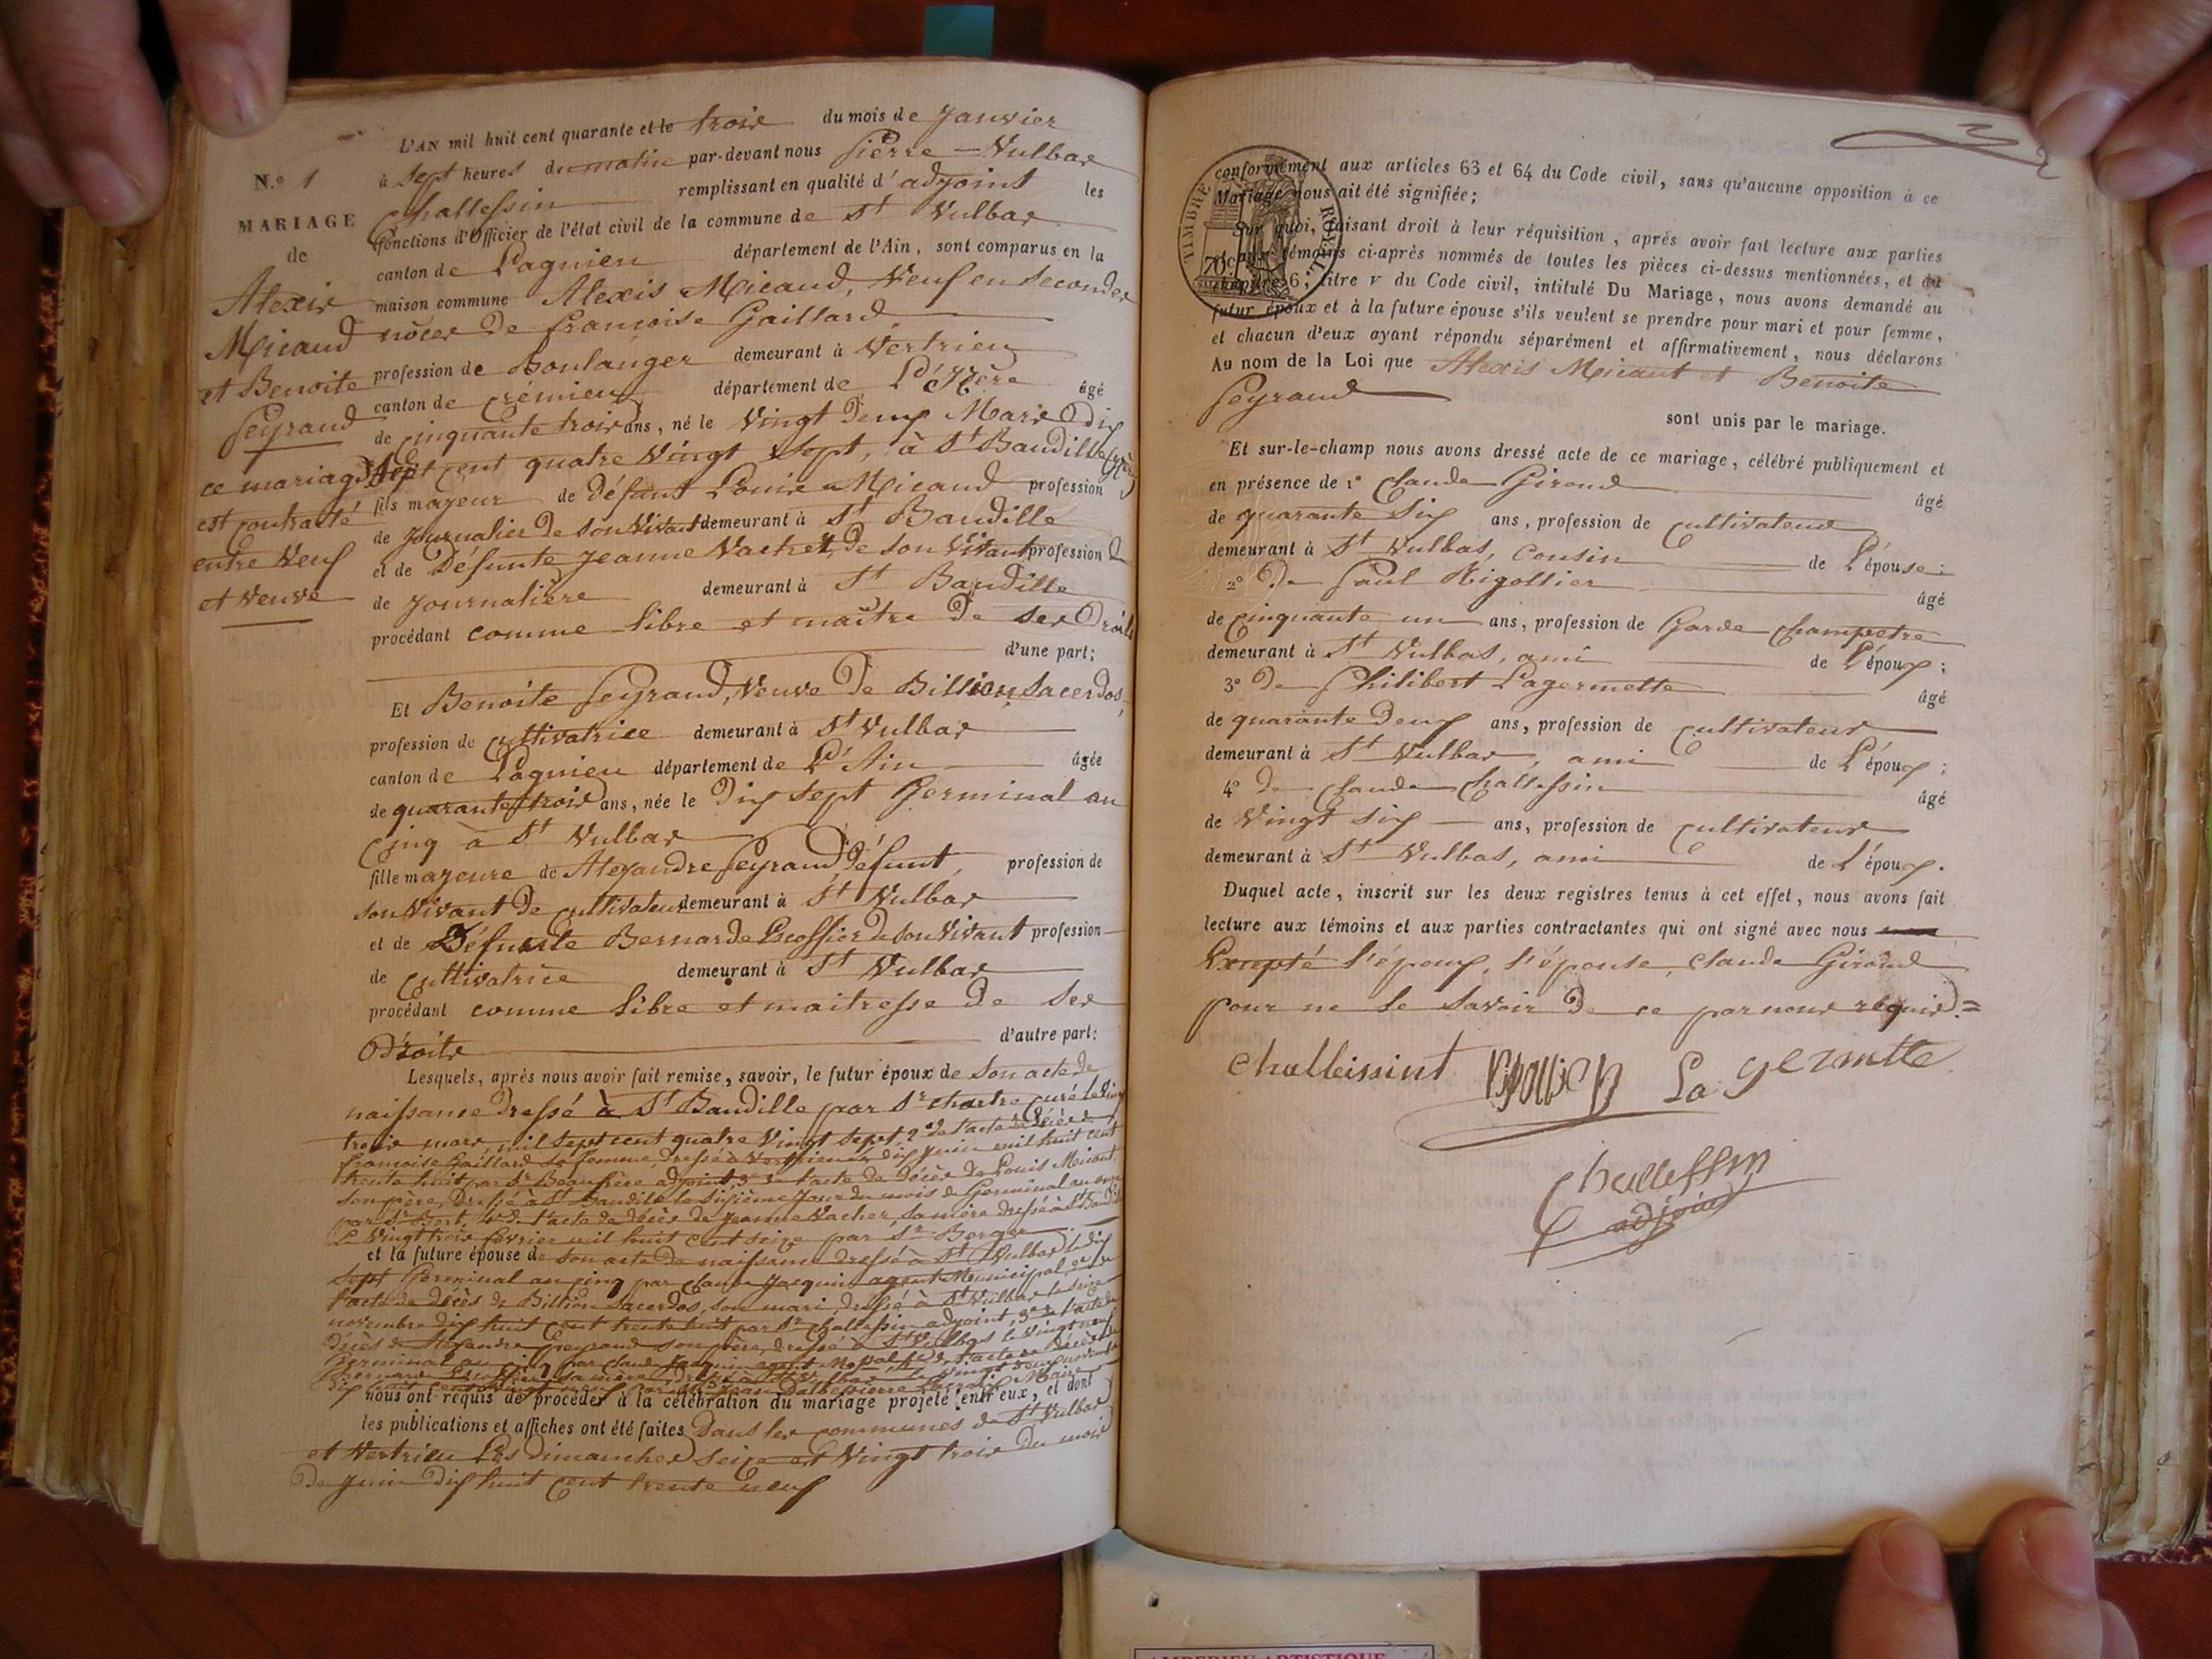 L'AN mil huit cent quarante et le trois du mois de Janvier
N.º 1
à Sept heures du matin par-devant nous Pierre - Vulbas
Challessin remplissant en qualité d'adjoint les
MARIAGE
fonctions d'Officier de l'état civil de la commune de St Vulbas
de
canton de Lagnieu département de l'Ain, sont comparus en la
Alexis
maison commune Alexis Micaud, Veuf en secondes
Micaud
nôces de francoise Gaillard
et Benoite
profession de Boulanger demeurant à Vertrieu
Peyraud
canton de crémieu département de L'Isère âgé
de cinquante trois ans, né le Vingt deux Mars dix
ce mariage
Sept cent quatre Vingt Sept, à St Baudille (Isère)
est contracté
fils majeur de défunt Louis Micaud profession
entre Veuf
de Journalier de son Vivant demeurant à St Baudille
et Veuve
et de Défunte Jeanne Vachez, de son Vivant profession
de Journalière demeurant à St Baudille
procédant comme libre et maître de ses Droits
d'une part;
Et Benoîte Peyraud, Veuve de Billion Sacerdos,
profession de cultivatrice demeurant à St Vulbas
canton de Lagnieu département de L'Ain âgée
de quarante trois ans, née le dix sept Germinal an
Cinq à St Vulbas
fille majeure de Alexandre Peyraud, défunt, profession de
son Vivant de cultivateur demeurant à St Vulbas
et de Défunte Bernarde Escoffier de son Vivant profession
de cultivatrice demeurant à St Vulbas
procédant comme libre et maitresse de ses
Droits d'autre part:
Lesquels, après nous avoir fait remise, savoir, le futur époux de son acte de
naissance dressé à St Baudille par Sr chartre curé le Vingt
trois mars mil sept cent quatre Vingt Sept, 2º de l'acte de décès de
francoise Gaillard sa femme, dressé à Vertrieu le dix Juin mil huit cent
trente huit par Sr Beaufrère adjoint, 3º de l'acte de décès de Louis Micaut
son père, Dressé à St Baudille le sixième Jour du mois de Germinal an onze
par Sr Bert, 4º de l'acte de décès de Jeanne Vacher, sa mère dressé à St Baudille
Le Vingt trois février mil huit cent seize par Sr Berger
et la future épouse de son acte de naissance dressé à St Vulbas le dix
Sept Germinal an cinq par Claude Jacquin agent Municipal, 2º de
l'acte de décès de Billion Sacerdos, son mari, dressé à St Vulbas le seize
novembre dix huit cent trente huit par Sr challessin adjoint, 3º de l'acte de
décès de Alexandre Peyraud son père, dressé à St Vulbas le Vingt neuf
Germinal an cinq par Claude Jacquin agent Mpal, 4º de l'acte de décès de
Bernarde Escoffier, sa mère, dressé à St Vulbas le Vingt deux novembre
nous ont requis de procéder à la célébration du mariage projeté entr'eux, et dont
les publications et affiches ont été faites Dans les communes de St Vulbas
et Vertrieu Les dimanches Seize et Vingt trois du mois
de Juin dix huit cent trente neuf
TIMBRE ROYAL
70
conformément aux articles 63 et 64 du Code civil, sans qu'aucune opposition à ce
Mariage nous ait été signifiée;
Sur quoi, faisant droit à leur réquisition, après avoir fait lecture aux parties
et aux témoins ci-après nommés de toutes les pièces ci-dessus mentionnées, et du
chapitre 6, titre v du Code civil, intitulé Du Mariage, nous avons demandé au
futur époux et à la future épouse s'ils veulent se prendre pour mari et pour femme,
et chacun d'eux ayant répondu séparément et affirmativement, nous déclarons
Au nom de la Loi que Alexis Micaut et Benoite
Peyraud
sont unis par le mariage.
Et sur-le-champ nous avons dressé acte de ce mariage, célébré publiquement et
en présence de 1º Claude Giroud âgé
de quarante Six ans, profession de cultivateur
demeurant à St Vulbas, cousin de L'épouse:
2º De Paul Rigollier âgé
de cinquante un ans, profession de Garde champetre
demeurant à St Vulbas, ami de L'époux;
3º De Philibert Lagermette âgé
de quarante deux ans, profession de cultivateur
demeurant à St Vulbas, ami de L'époux;
4º De Claude Challessin âgé
de Vingt six ans, profession de cultivateur
demeurant à St Vulbas, ami de L'époux.
Duquel acte, inscrit sur les deux registres tenus à cet effet, nous avons fait
lecture aux témoins et aux parties contractantes qui ont signé avec nous
Excepté l'époux, l'épouse, Claude Giroud
pour ne le Savoir de ce par nous requis.=
challeissint Rigollier La germette
Challessin
adjoint
AMBERIEU ARTISTIQUE